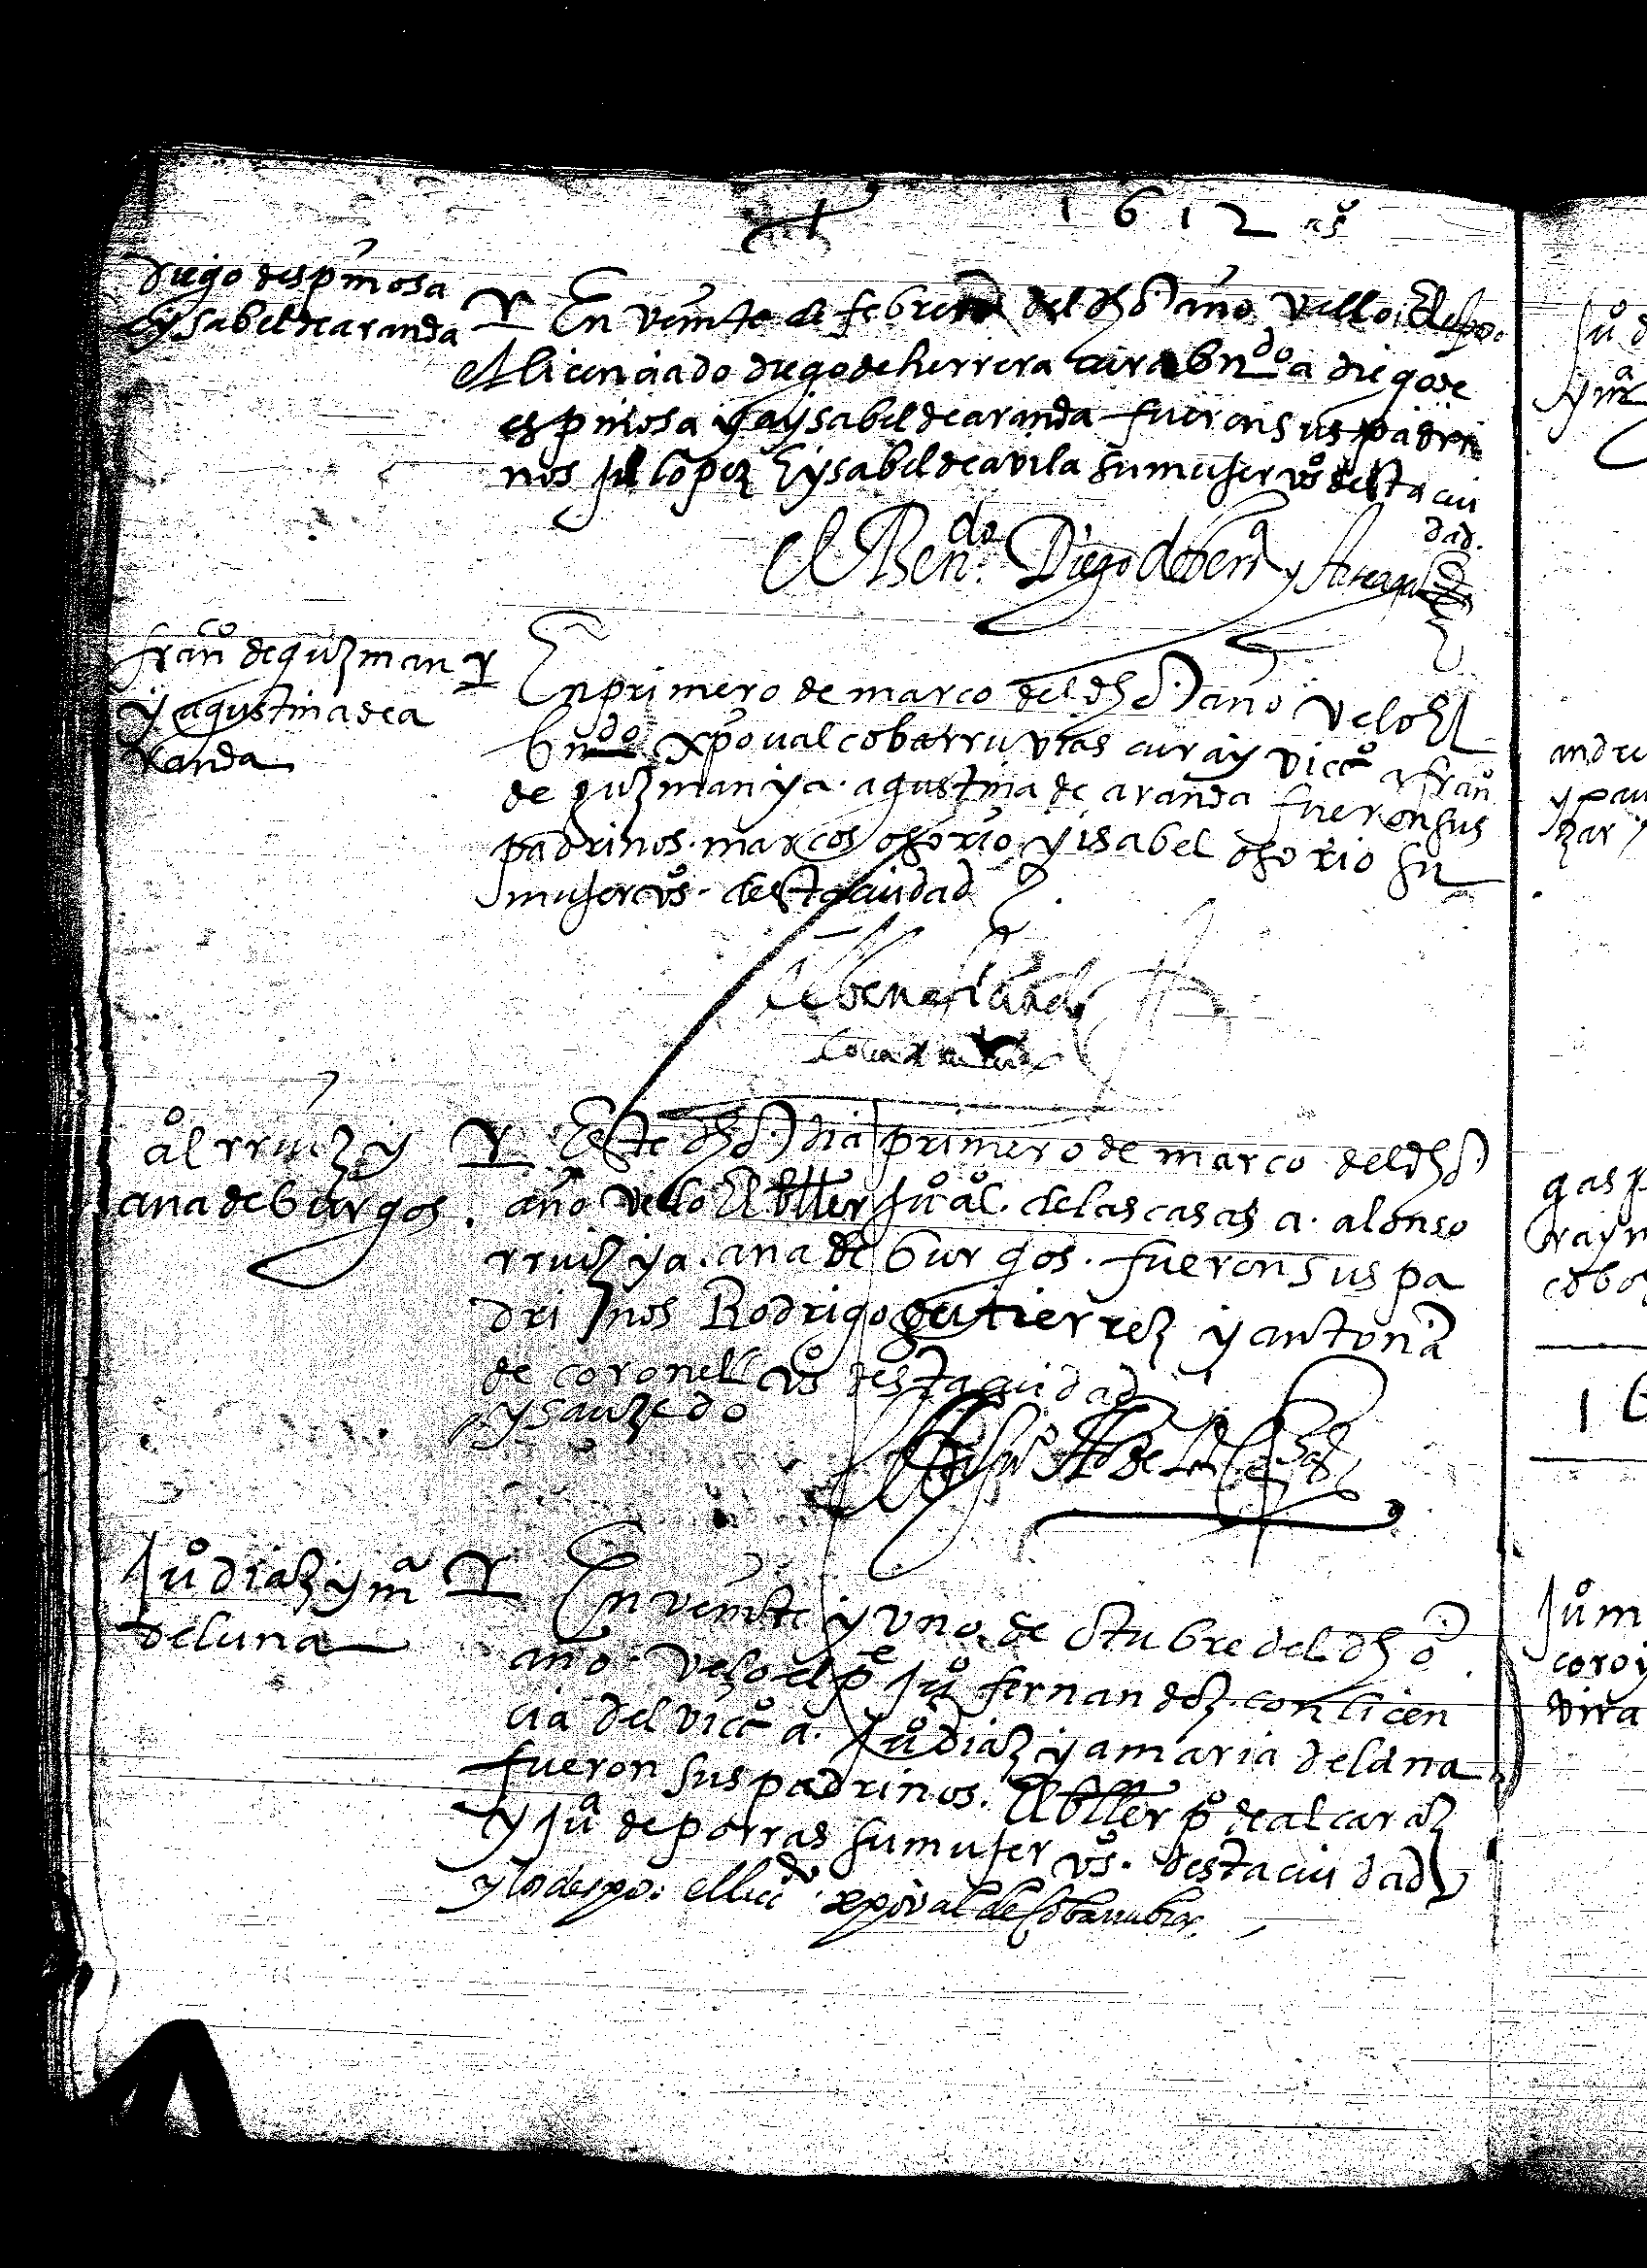 1612 as
diego despinosa
y sabel de aranda
En veinte de febrero del dho año velloi despo.
el licenciado diego de herrera cura bndo a diego de
espinosa y a ysabel de aranda fueron sus padri
nos lopez E ysabel de avila su mujer vos desta ciu
dad.
El Bendo. Diego de herra y
franco de guzman
y agustina de a
randa
En primero de março del dho año velo El
bndo xpoval cobarruvias cura y vicco a frano
de guzman y a. agustina de aranda fueron sus
padrinos. marcos osorio y isabel osorio su
mujer vos. desta ciudad
el beneficiado
alo rruiz y
ana de burgos.
Este dho dia primero de março del dho
año velo El bller juo alo. de las casas a. alonso
rruiz y a. ana de burgos. fueron sus pa
drinos Rodrigo gutierrez y antona
de coronel vos desta ciudad
y sauzedo
juo diaz y ma
de luna
En veinte y uno de otubre del dho
año. velo el pe juo fernandez con licen
cia del vicco a. juo diaz y a maria de luna
fueron sus padrinos. El bller po de alcaraz
y jua de porras su mujer vos. desta ciudad
y los despo. el licdo. xpoval de Cobarrubias
juo d
y ma
andre
y pau
zar
gasp
ray m
cobo
juo m
coro y
vira